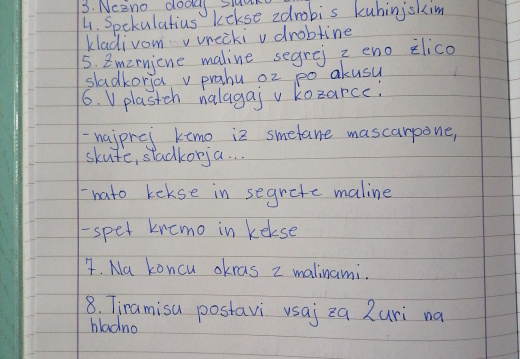 3. Nežno dodaj
4. Spekulatius kekse zdrobi s kuhinjskim
kladivom v vrečki v drobtine
5. Zmrznjene maline segrej z eno žlico
sladkorja v prahu oz po okusu
6. V plasteh nalagaj v kozarce:
-najprej kremo iz smetane mascarpone,
skute, sladkorja...
-nato kekse in segrete maline
-spet kremo in kekse
7. Na koncu okras z malinami.
8. Tiramisu postavi vsaj za 2 uri na
hladno